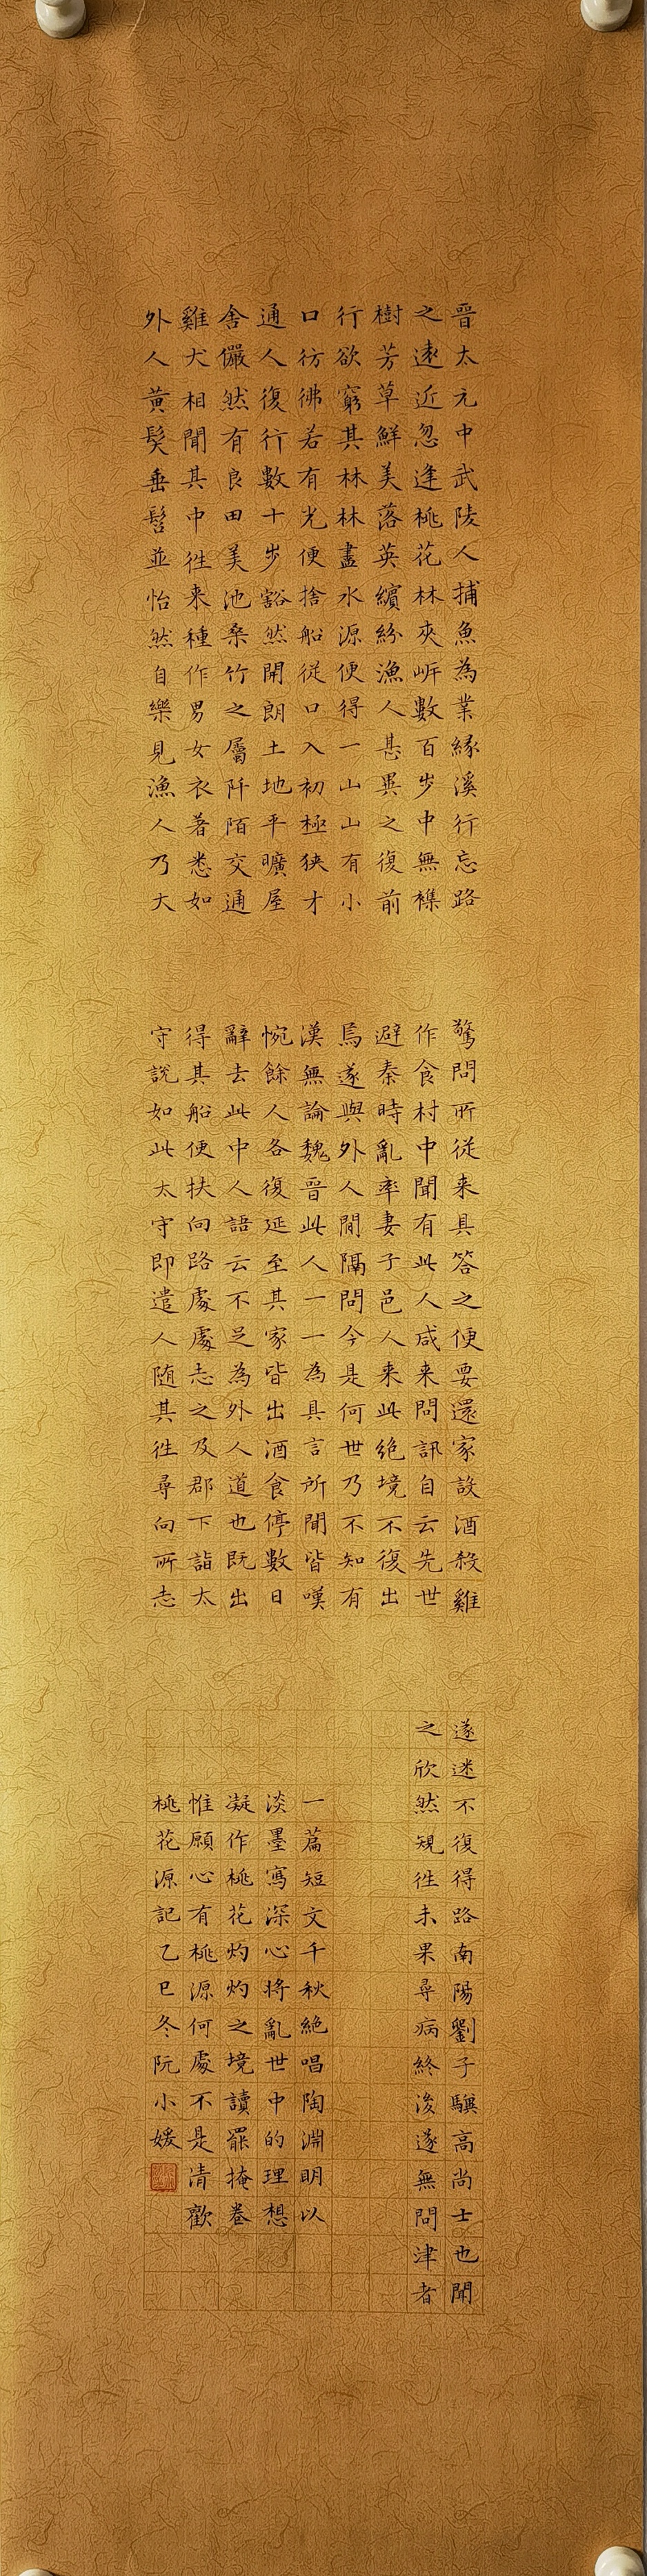 晉太元中武陵人捕魚為業縁溪行忘路
之逺近忽逢桃花林夾岍數百步中無襍
樹芳草鮮美落英繽紛漁人甚異之復前
行欲窮其林林盡水源便得一山山有小
口彷彿若有光便捨船從口入初極狹才
通人復行數十步豁然開朗土地平曠屋
舍儼然有良田美池桑竹之屬阡陌交通
雞犬相聞其中徃来種作男女衣著悉如
外人黃髮垂髫並怡然自樂見漁人乃大
驚問所從来具答之便要還家設酒殺雞
作食村中聞有此人咸来問訊自云先世
避秦時亂率妻子邑人来此絶境不復出
焉遂與外人間隔問今是何世乃不知有
漢無論魏晉此人一一為具言所聞皆嘆
惋餘人各復延至其家皆出酒食停數日
辭去此中人語云不足為外人道也既出
得其船便扶向路處處志之及郡下詣太
守說如此太守即遣人随其徃尋向所志
遂迷不復得路南陽劉子驥高尚士也聞
之欣然規徃未果尋病終後遂無問津者
一篇短文千秋絶唱陶淵明以
淡墨寫深心將亂世中的理想
凝作桃花灼灼之境讀罷掩卷
惟願心有桃源何處不是清歡
桃花源記乙巳冬阮小媛